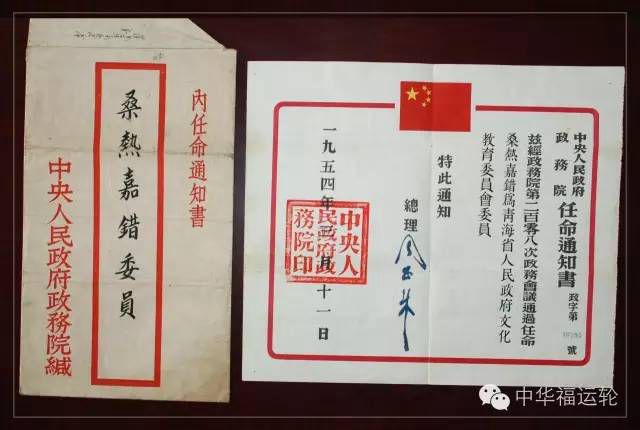 內任命通知書
桑熱嘉錯委員
中央人民政府政務院緘
中央人民政府
政務院
任命通知書
政字第
號
茲經政務院第二百零八次政務會議通過任命
桑熱嘉錯爲靑海省人民政府文化
教育委員會委員
特此通知
總理
周恩來
一九五四年三月十一日
中央人
民政府政
務院印
中华福运轮